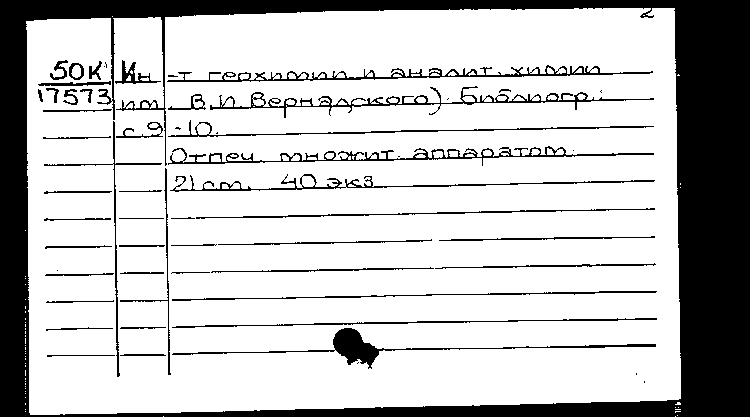 2
50К Ин-т геохимии и аналит. химии
17573 им. В.И. Вернадского). Библиогр.:
с. 9-10.
Отпеч. множит. аппаратом
21 см. 40 экз